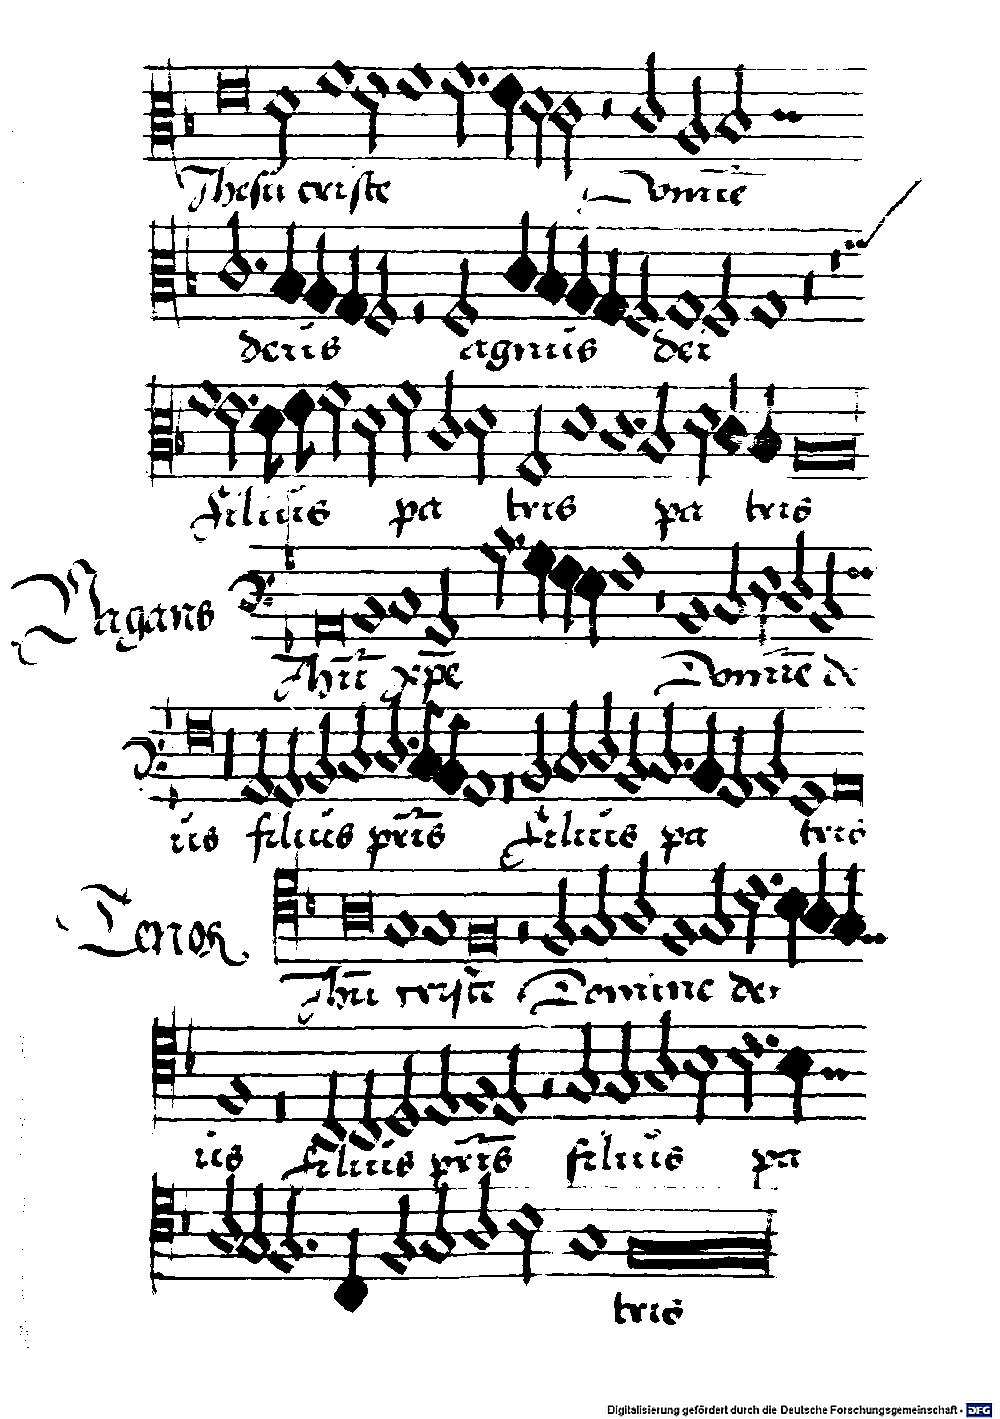 Jhesu criste Domīe
deus agnus dei
filius pa tris pa tris
Vagans
Jhū xp̄e Domīe de
us filius pr̄is filius pa tris
Tenor
Jhū criste Domine de
us filius pr̄is filius pa
tris
Digitalisierung gefördert durch die Deutsche Forschungsgemeinschaft - DFG